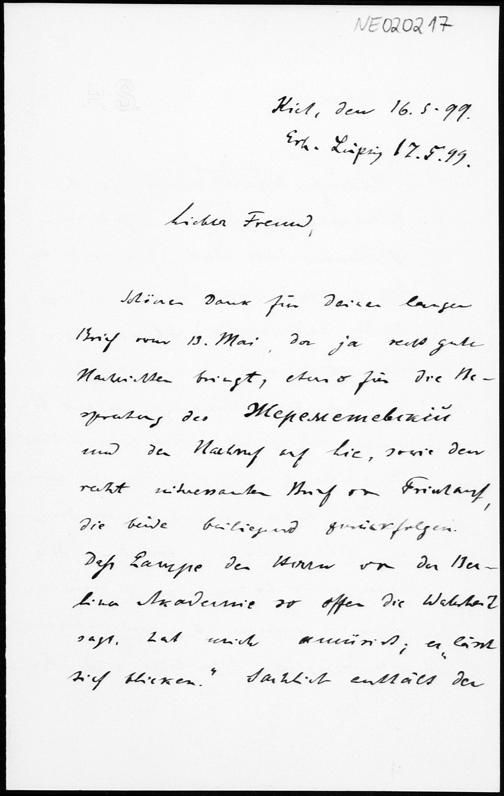 NE020217
Kiel, den 16.5.99.
Erh. Leipzig 17.5.99.
Lieber Freund,
Schönen Dank für Deinen langen
Brief vom 13. Mai, der ja recht gute
Nachrichten bringt, ebenso für die Be-
sprechung des Жереметевскій
und den Nachruf auf Lie, sowie den
recht interessanten Brief von
die beide beiliegend zurückfolgen.
Daß Lampe den Herren von der Ber-
liner Akademie so offen die Wahrheit
sagt, hat mich amüsirt; er „lässt
sich blicken." Sachlich enthält der